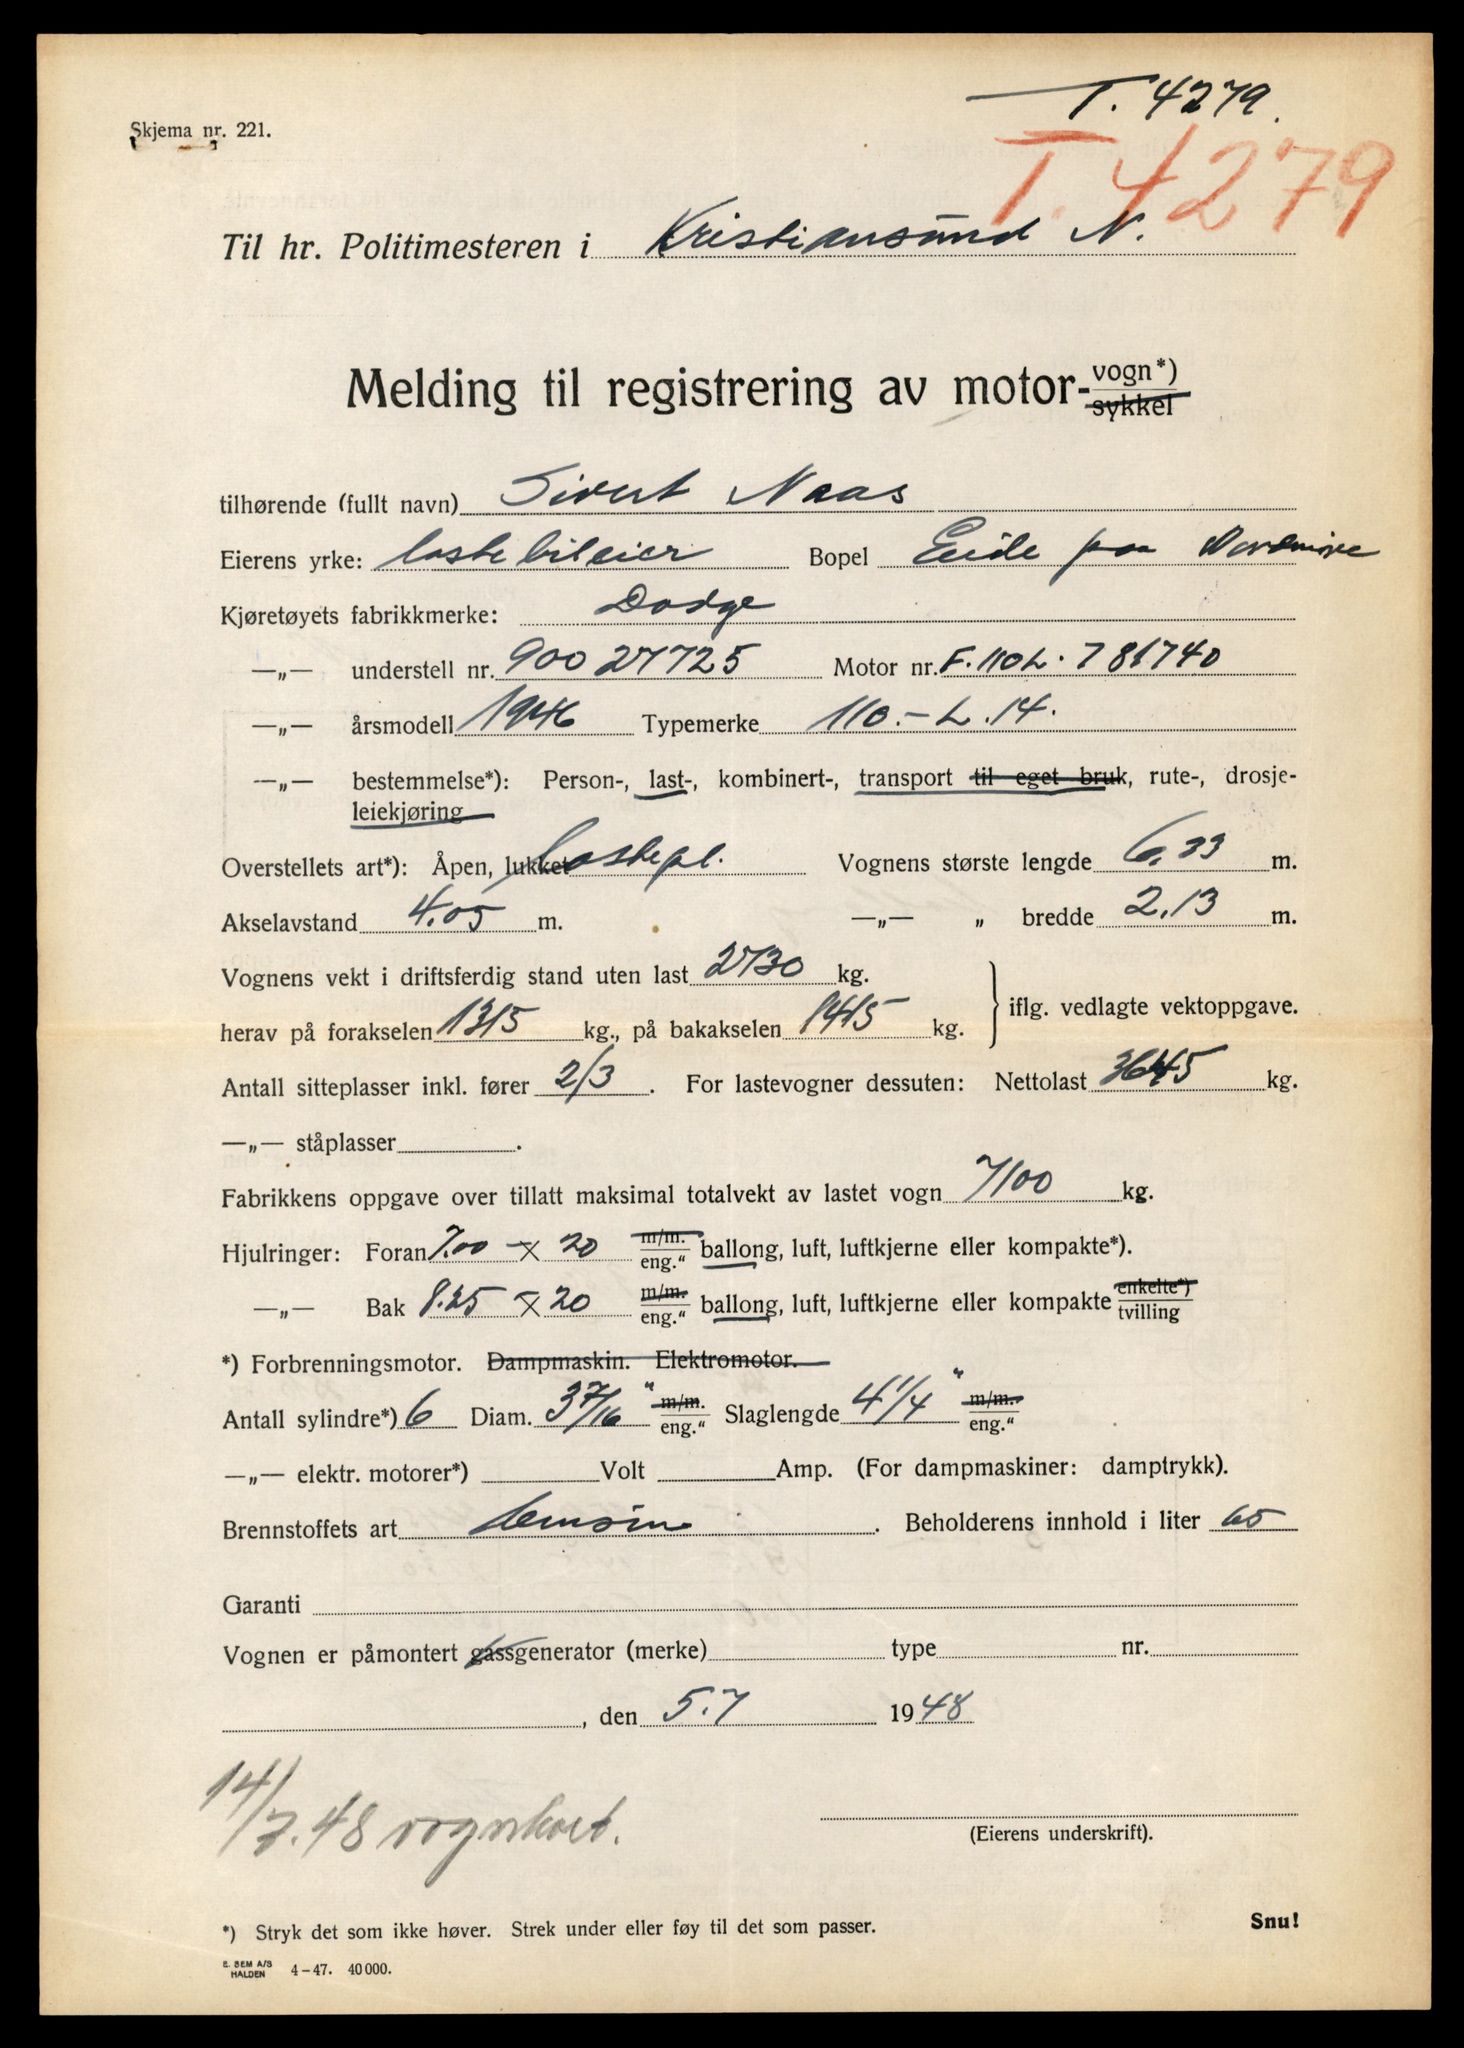 T. 4279.
Skjema nr. 221.
T. 4279
Til hr. Politimesteren i Kristiansund N.
Melding til registrering av motor-vogn*)
sykkel
tilhørende (fullt navn) Sivert Naas
Eierens yrke: lastebileier Bopel Eide paa Nordmøre
Kjøretøyets fabrikkmerke: Dodge
—„— understell nr. 90027725 Motor nr. F. 110L. 781740
—„— årsmodell 1946 Typemerke 110.-L.14.
—„— bestemmelse*): Person-, last-, kombinert-, transport til eget bruk, rute-, drosje-
leiekjøring
Overstellets art*): Åpen, lukket lastepl. Vognens største lengde 6,33 m.
Akselavstand 4.05 m. —„— „ bredde 2.13 m.
Vognens vekt i driftsferdig stand uten last 2730 kg.
herav på forakselen 1315 kg., på bakakselen 1415 kg. iflg. vedlagte vektoppgave.
Antall sitteplasser inkl. fører 2/3. For lastevogner dessuten: Nettolast 3645 kg.
—„— ståplasser .
Fabrikkens oppgave over tillatt maksimal totalvekt av lastet vogn 7100 kg.
Hjulringer: Foran 7.00 - x 20 m/m. eng.“ ballong, luft, luftkjerne eller kompakte*).
—„— Bak 8.25 - x 20 m/m. eng.“ ballong, luft, luftkjerne eller kompakte enkelte*) tvilling
*) Forbrenningsmotor. Dampmaskin. Elektromotor.
Antall sylindre*) 6 Diam. 3 7/16" m/m. eng.“ Slaglengde 4 1/4" m/m. eng.“
—„— elektr. motorer*) Volt Amp. (For dampmaskiner: damptrykk).
Brennstoffets art bensin. Beholderens innhold i liter 65
Garanti
Vognen er påmontert gassgenerator (merke) type nr.
, den 5.7 1948
14/7.48 vognkort.
(Eierens underskrift).
*) Stryk det som ikke høver. Strek under eller føy til det som passer. Snu!
E. SEM A/S
HALDEN 4–47. 40 000.